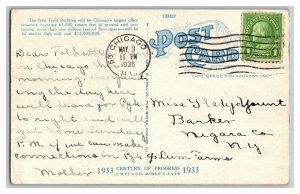 The New Field Building will be Chicago's largest office
structure covering 61,000 square feet of ground and con-
taining more than one million feet of floor space—will
be stories high and cost $15,000,000.
Post
Card
THIS SPACE FOR ADDRESS ONLY
CHICAGO
MAY 9
11 PM
1935
Dear Folks
in Chicago this
morning
the day here
will leave for Pgh
to night and will
get home Sunday
P.M. if we can make
connections in Pgh
Mother
Miss Gladys Yount
Barker
Niagara Co.
N.Y.
c/o Lum Farms
1933 CENTURY OF PROGRESS 1933
CHICAGO WORLD'S FAIR